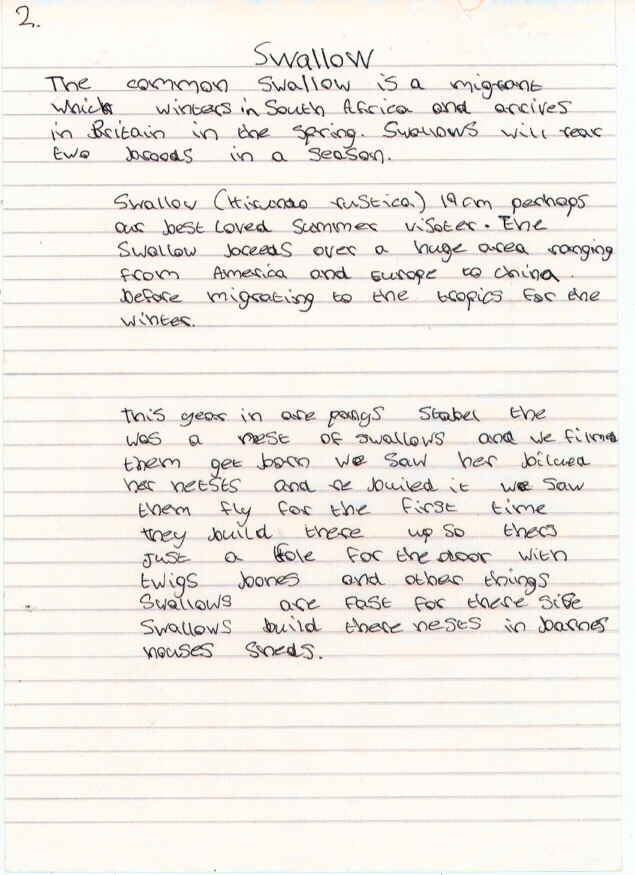 2.
Swallow
The common Swallow is a migrant
which winters in South Africa and arrives
in Britain in the Spring. Swallows will rear
two broods in a season.
Swallow (Hirundo rustica) 19cm perhaps
our best loved summer visoter. The
Swallow breeds over a huge area ranging
from America and Europe to China.
before migrating to the tropics for the
winter.
This year in are ponys Stabel the
was a nest of swallows and we filmed
them get born we saw her
her netsts and re it we saw
them fly for the first time
they build there up so thers
Just a hole for the door with
twigs bones and other things
Swallows are fast for there Size
Swallows build there nests in barnes
houses Sheds.